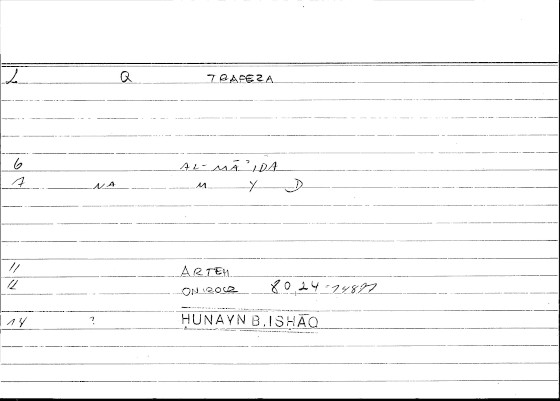 Q TRAPEZA
6 AL-MĀ'IDA
7 NA M Y D
11 ARTEM
12 ONIROCR 80,24
14 ? HUNAYN B. ISHĀQ